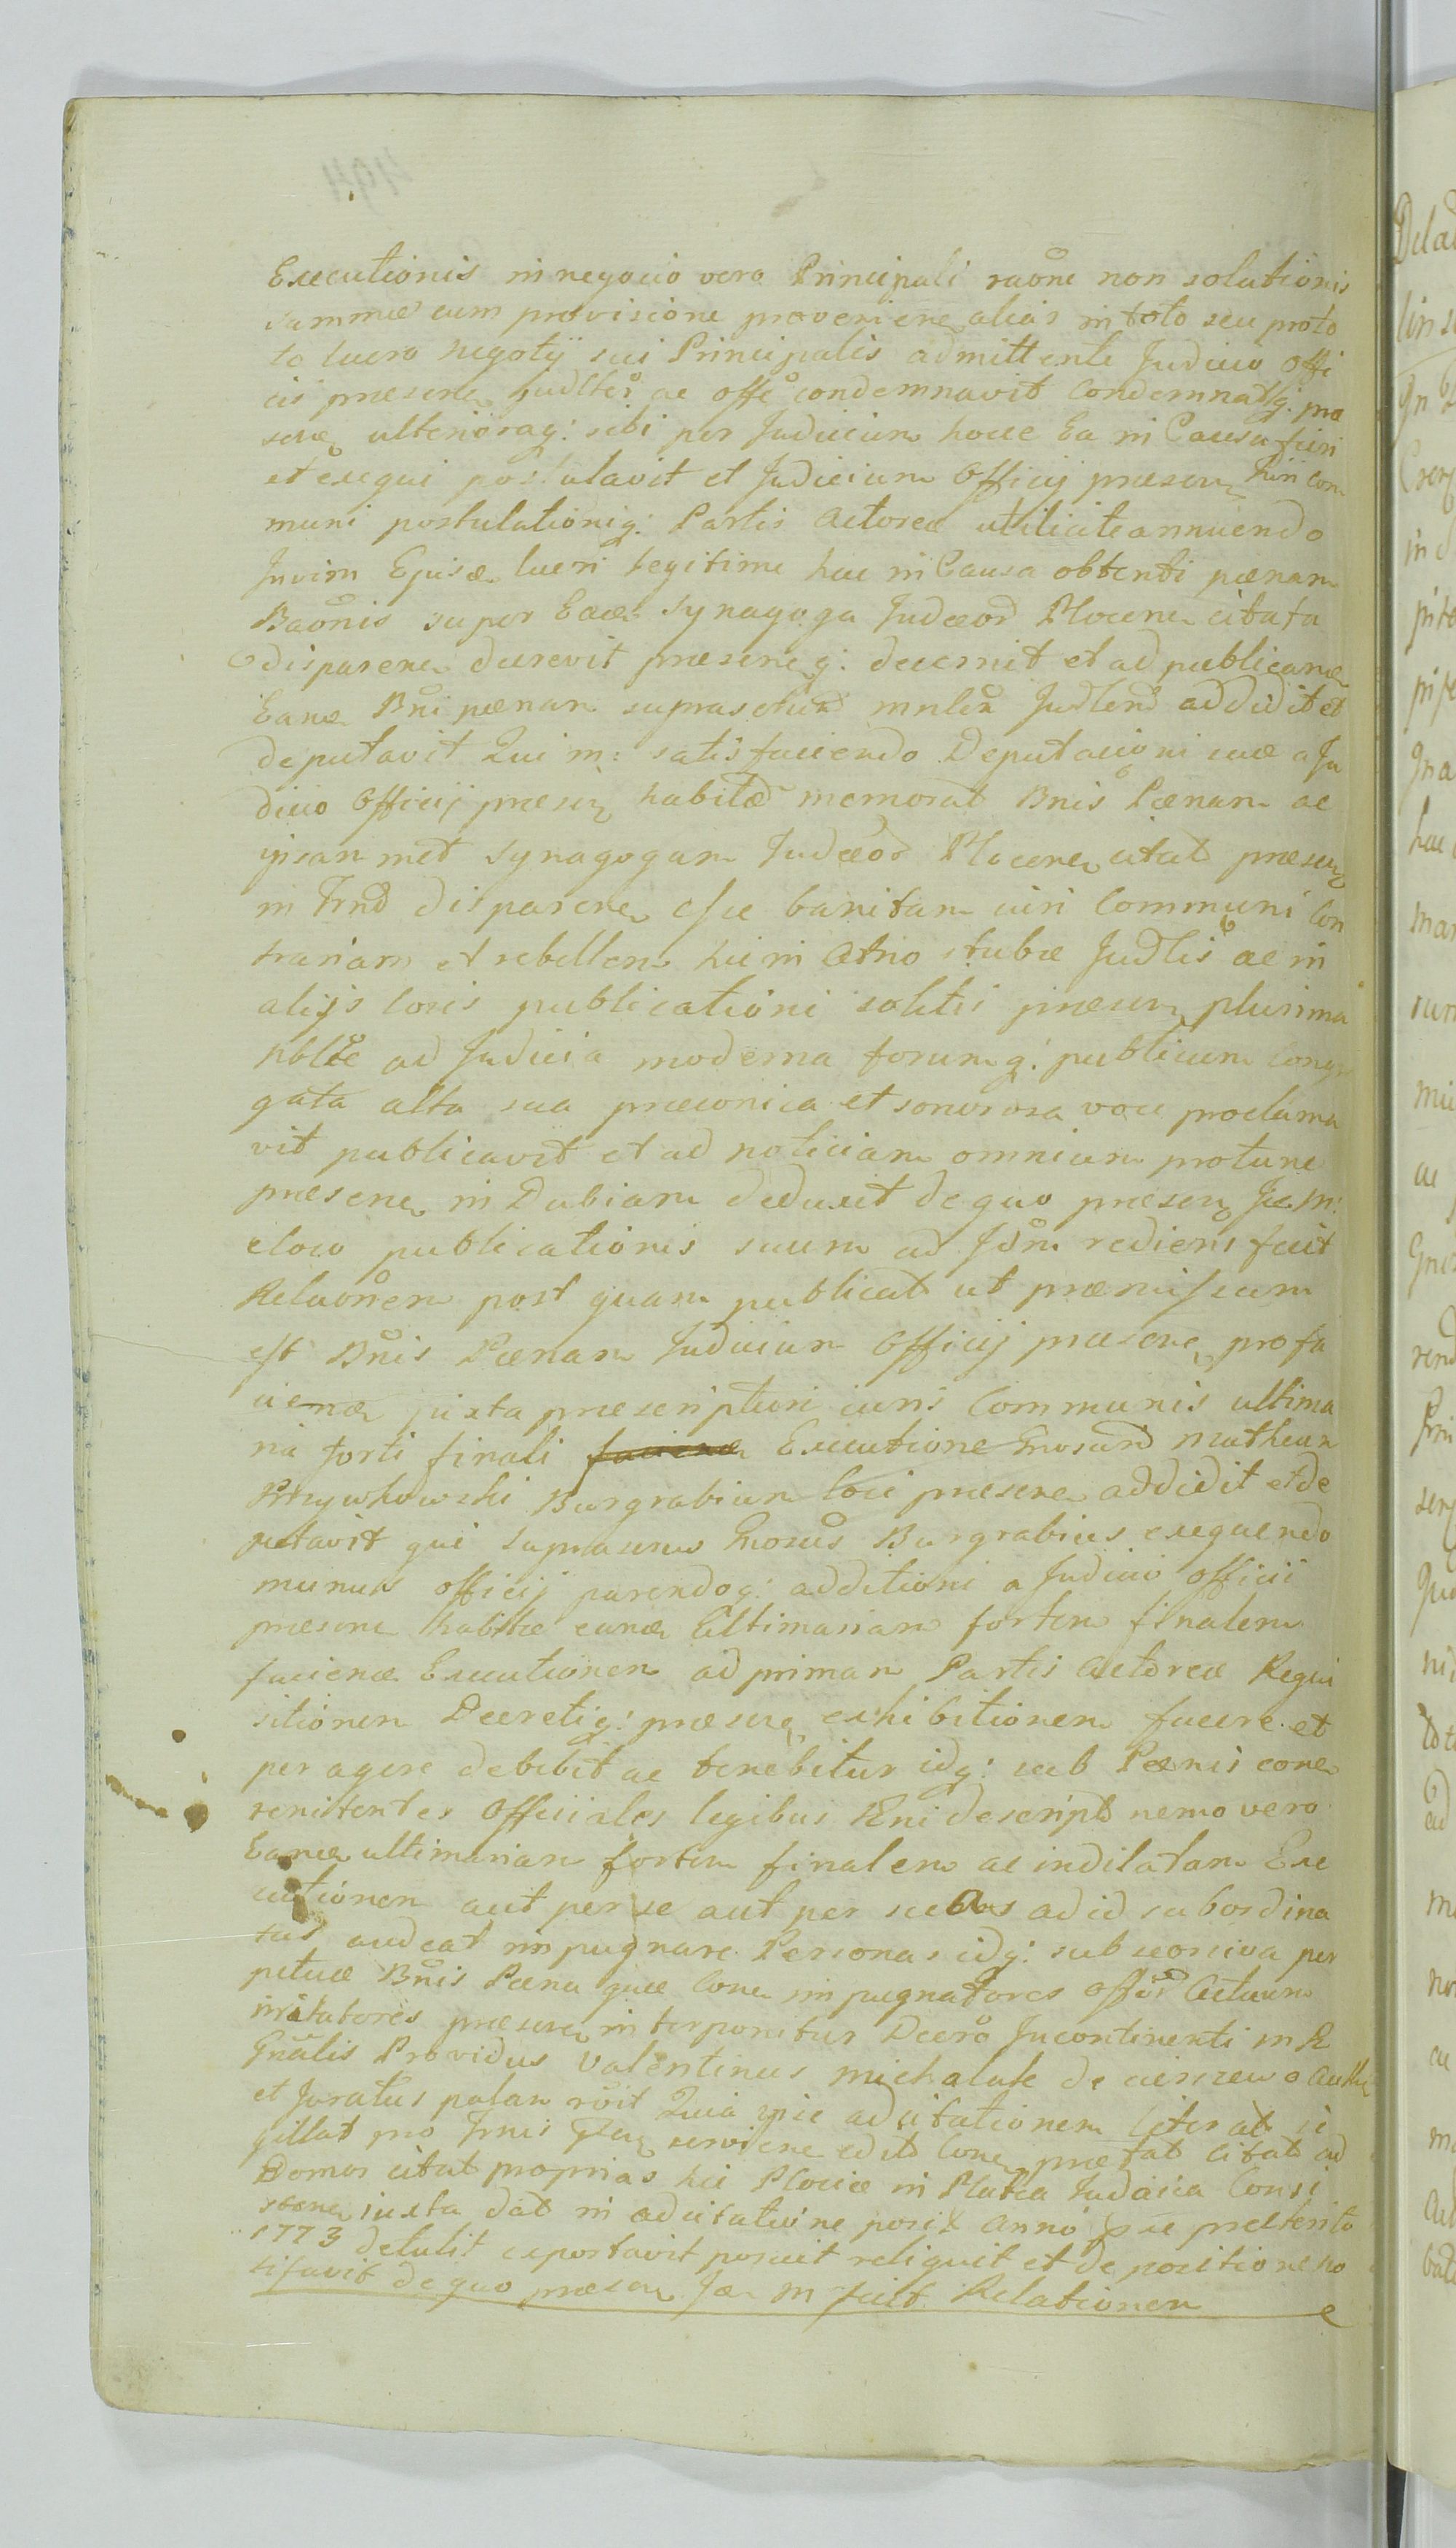 Executionis in negocio vero Principali raone non solutionis
summae cum provisione provenien alias in toto seu proto
to lucro negotij sui Principalis admittente Judicio Offi
cii praesen Judlter ac offe condemnavit Condemnatq: prae
sen ulterioraq: sibi per Judicium hocce Ea in Causa fieri
et exequi postulavit et Judicium Officij praesen Juri Com
muni postulationiq: Partis Actoreae utiliciteannuendo
In vim Ejusd lucri legitime hac in Causa obtenti paenam
Baonis super Eand Synagoga Judaeor Plocen citata
disparen decrevit praesenq: decernit et ad publicand
Eand Bni paenam suprasctum mnlem Judlem addidit et
deputavit Qui m: satisfaciendo Deputacioni suae a Ju
dicio Officij praesen habitae memorat Bnis Paenam ac
ipsam met Synagogam Judaeor Plocen citat praesen
in Trno disparen esse banitam iuri Communi Con
trariam et rebellem hic in Atrio stubae Judlis ac in
alijs locis publicationi solitis praesen plurima
Nbltte ad Judicia moderna forumq: publicum Congre
gata alta sua praeconica et sonorosa voce proclama
vit publicavit et ad noticiam omnium protunc
praesen in Dubiam deduxit de quo praesen Jae M:
eloco publicationis suum ad Idm rediens fecit
Relaonem post quam publicat ut praemissum
est Bnis Paenam Judicium Officij praesen pro fa
ciend juxta praescriptum iuris Communis ultima
ria forti finali Executione Gnosum Matheum
Przywkowski Burgrabium loci praesen addidit et de
putavit qui supranus Gnosus Burgrabius exequendo
munus officij parendoq: additioni a Judicio officii
praesen habitae eand Ultimariam fortem finalem
faciend Executionem ad primam Partis Actoreae Requi
sitionem Decretiq: praesen exhibitionem facere et
peragere debebit ac tenebitur idq: sub Paenis con
renitentes Officiales legibus Rni descript nemo vero
Eand ultimariam fortem finalem ac indilatam Exe
cutionem aut per se aut per suas ad id subordina
tas audeat impugnare Personas idq: sub
petuae Bnis Paena quae Con impugnatores offor Actuum
irritatores praesen interponitur Decro Incontinenti M R
Gnalis Providus Valentinus Michalak de
et Juratus palam roit Quia ipse ad citationem literat si
gillat pro Trnis serviens edit Con praefat citat ad
Domos citat proprias hic Plociae in Platea Judaica Consi
sten iuxta dat in ad citatione posit Anno praeterito
1773 detulit deportavit posuit reliquit et de positione no
tificavit de quo praesen Jae M fecit Relationem